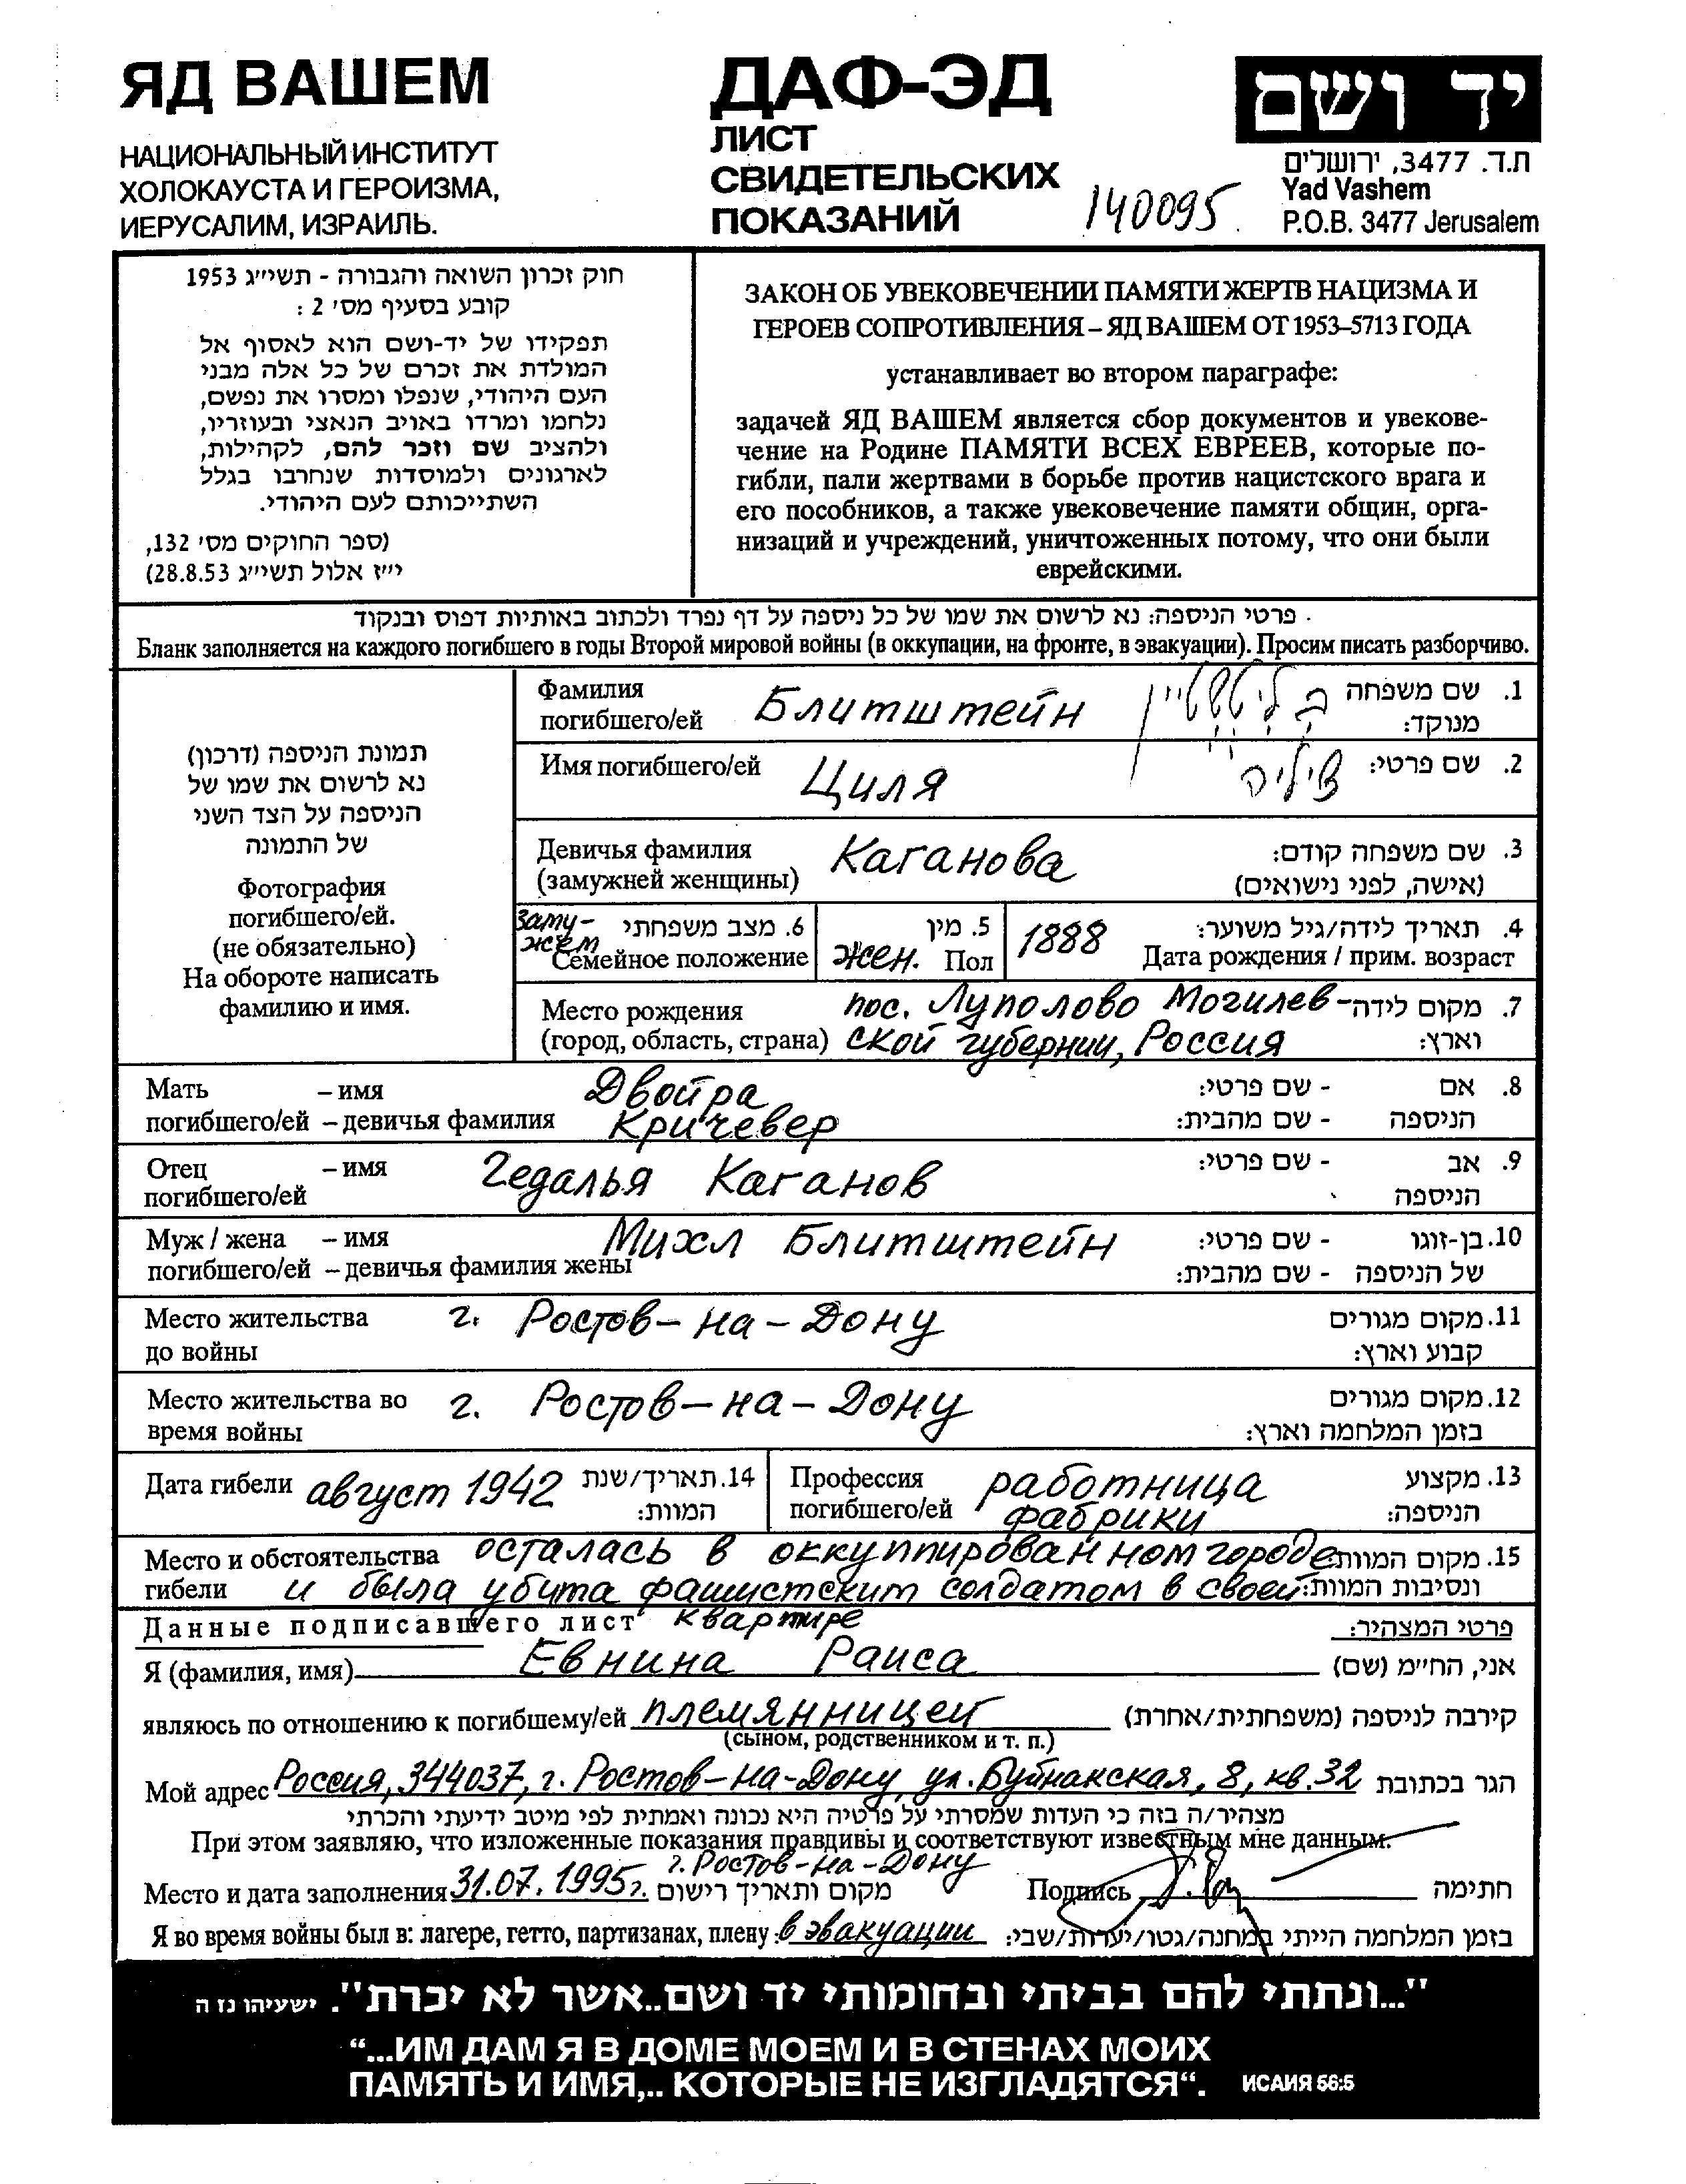 ЯД ВАШЕМ
НАЦИОНАЛЬНЫЙ ИНСТИТУТ
ХОЛОКАУСТА И ГЕРОИЗМА,
ИЕРУСАЛИМ, ИЗРАИЛЬ.
ДАФ-ЭД
ЛИСТ
СВИДЕТЕЛЬСКИХ
ПОКАЗАНИЙ
140095
יד ושם
ת.ד. 3477, ירושלים
Yad Vashem
P.O.B. 3477 Jerusalem
חוק זכרון השואה והגבורה - תשי״ג 1953
קובע בסעיף מס׳ 2 :
תפקידו של יד-ושם הוא לאסוף אל
המולדת את זכרם של כל אלה מבני
העם היהודי, שנפלו ומסרו את נפשם,
נלחמו ומרדו באויב הנאצי ובעוזריו,
ולהציב שם וזכר להם, לקהילות,
לארגונים ולמוסדות שנחרבו בגלל
השתייכותם לעם היהודי.
(ספר החוקים מס׳ 132,
י״ז אלול תשי״ג 28.8.53)
ЗАКОН ОБ УВЕКОВЕЧЕНИИ ПАМЯТИ ЖЕРТВ НАЦИЗМА И
ГЕРОЕВ СОПРОТИВЛЕНИЯ – ЯД ВАШЕМ ОТ 1953–5713 ГОДА
устанавливает во втором параграфе:
задачей ЯД ВАШЕМ является сбор документов и увекове-
чение на Родине ПАМЯТИ ВСЕХ ЕВРЕЕВ, которые по-
гибли, пали жертвами в борьбе против нацистского врага и
его пособников, а также увековечение памяти общин, орга-
низаций и учреждений, уничтоженных потому, что они были
еврейскими.
פרטי הניספה: נא לרשום את שמו של כל ניספה על דף נפרד ולכתוב באותיות דפוס ובנקוד .
Бланк заполняется на каждого погибшего в годы Второй мировой войны (в оккупации, на фронте, в эвакуации). Просим писать разборчиво.
תמונת הניספה (דרכון)
נא לרשום את שמו של
הניספה על הצד השני
של התמונה
Фотография
погибшего/ей.
(не обязательно)
На обороте написать
фамилию и имя.
Фамилия
погибшего/ей Блитштейн בליטשטיין 1. שם משפחה
מנוקד:
Имя погибшего/ей Циля ציליה 2. שם פרטי:
Девичья фамилия Каганова 3. שם משפחה קודם:
(замужней женщины) (אישה, לפני נישואים)
заму- 6. מצב משפחתי 5. מין 1888 4. תאריך לידה/גיל משוער:
жем Семейное положение жен. Пол Дата рождения / прим. возраст
Место рождения пос. Луполово Могилев- 7. מקום לידה
(город, область, страна) ской губернии, Россия וארץ:
Мать – имя Двойра 8. אם - שם פרטי:
погибшего/ей – девичья фамилия Кричевер הניספה - שם מהבית:
Отец – имя Гедалья Каганов 9. אב - שם פרטי:
погибшего/ей הניספה
Муж / жена – имя Михл Блитштейн 10. בן-זוגו - שם פרטי:
погибшего/ей – девичья фамилия жены של הניספה - שם מהבית:
Место жительства г. Ростов-на-Дону 11. מקום מגורים
до войны קבוע וארץ:
Место жительства во г. Ростов-на-Дону 12. מקום מגורים
время войны בזמן המלחמה וארץ:
Дата гибели август 1942 14. תאריך/שנת
המוות:
Профессия работница 13. מקצוע
погибшего/ей фабрики הניספה:
Место и обстоятельства осталась в оккуппированном городе 15. מקום המוות
гибели и была убита фашистским солдатом в своей ונסיבות המוות:
Данные подписавшего лист квартире פרטי המצהיר:
Я (фамилия, имя) Евнина Раиса אני, החי״מ (שם)
являюсь по отношению к погибшему/ей племянницей קירבה לניספה (משפחתית/אחרת)
(сыном, родственником и т. п.)
Мой адрес Россия, 344037, г. Ростов-на-Дону, ул. Буйнакская, 8, кв. 32 הגר בכתובת
מצהיר/ה בזה כי העדות שמסרתי על פרטיה היא נכונה ואמתית לפי מיטב ידיעתי והכרתי
При этом заявляю, что изложенные показания правдивы и соответствуют известным мне данным.
г. Ростов-на-Дону
Место и дата заполнения 31.07.1995г. מקום ותאריך רישום Подпись חתימה
Я во время войны был в: лагере, гетто, партизанах, плену: в эвакуации בזמן המלחמה הייתי במחנה/גטו/יערות/שבי:
"...ונתתי להם בביתי ובחומותי יד ושם..אשר לא יכרת". ישעיהו נז ה
“...ИМ ДАМ Я В ДОМЕ МОЕМ И В СТЕНАХ МОИХ
ПАМЯТЬ И ИМЯ,.. КОТОРЫЕ НЕ ИЗГЛАДЯТСЯ“. ИСАИЯ 56:5